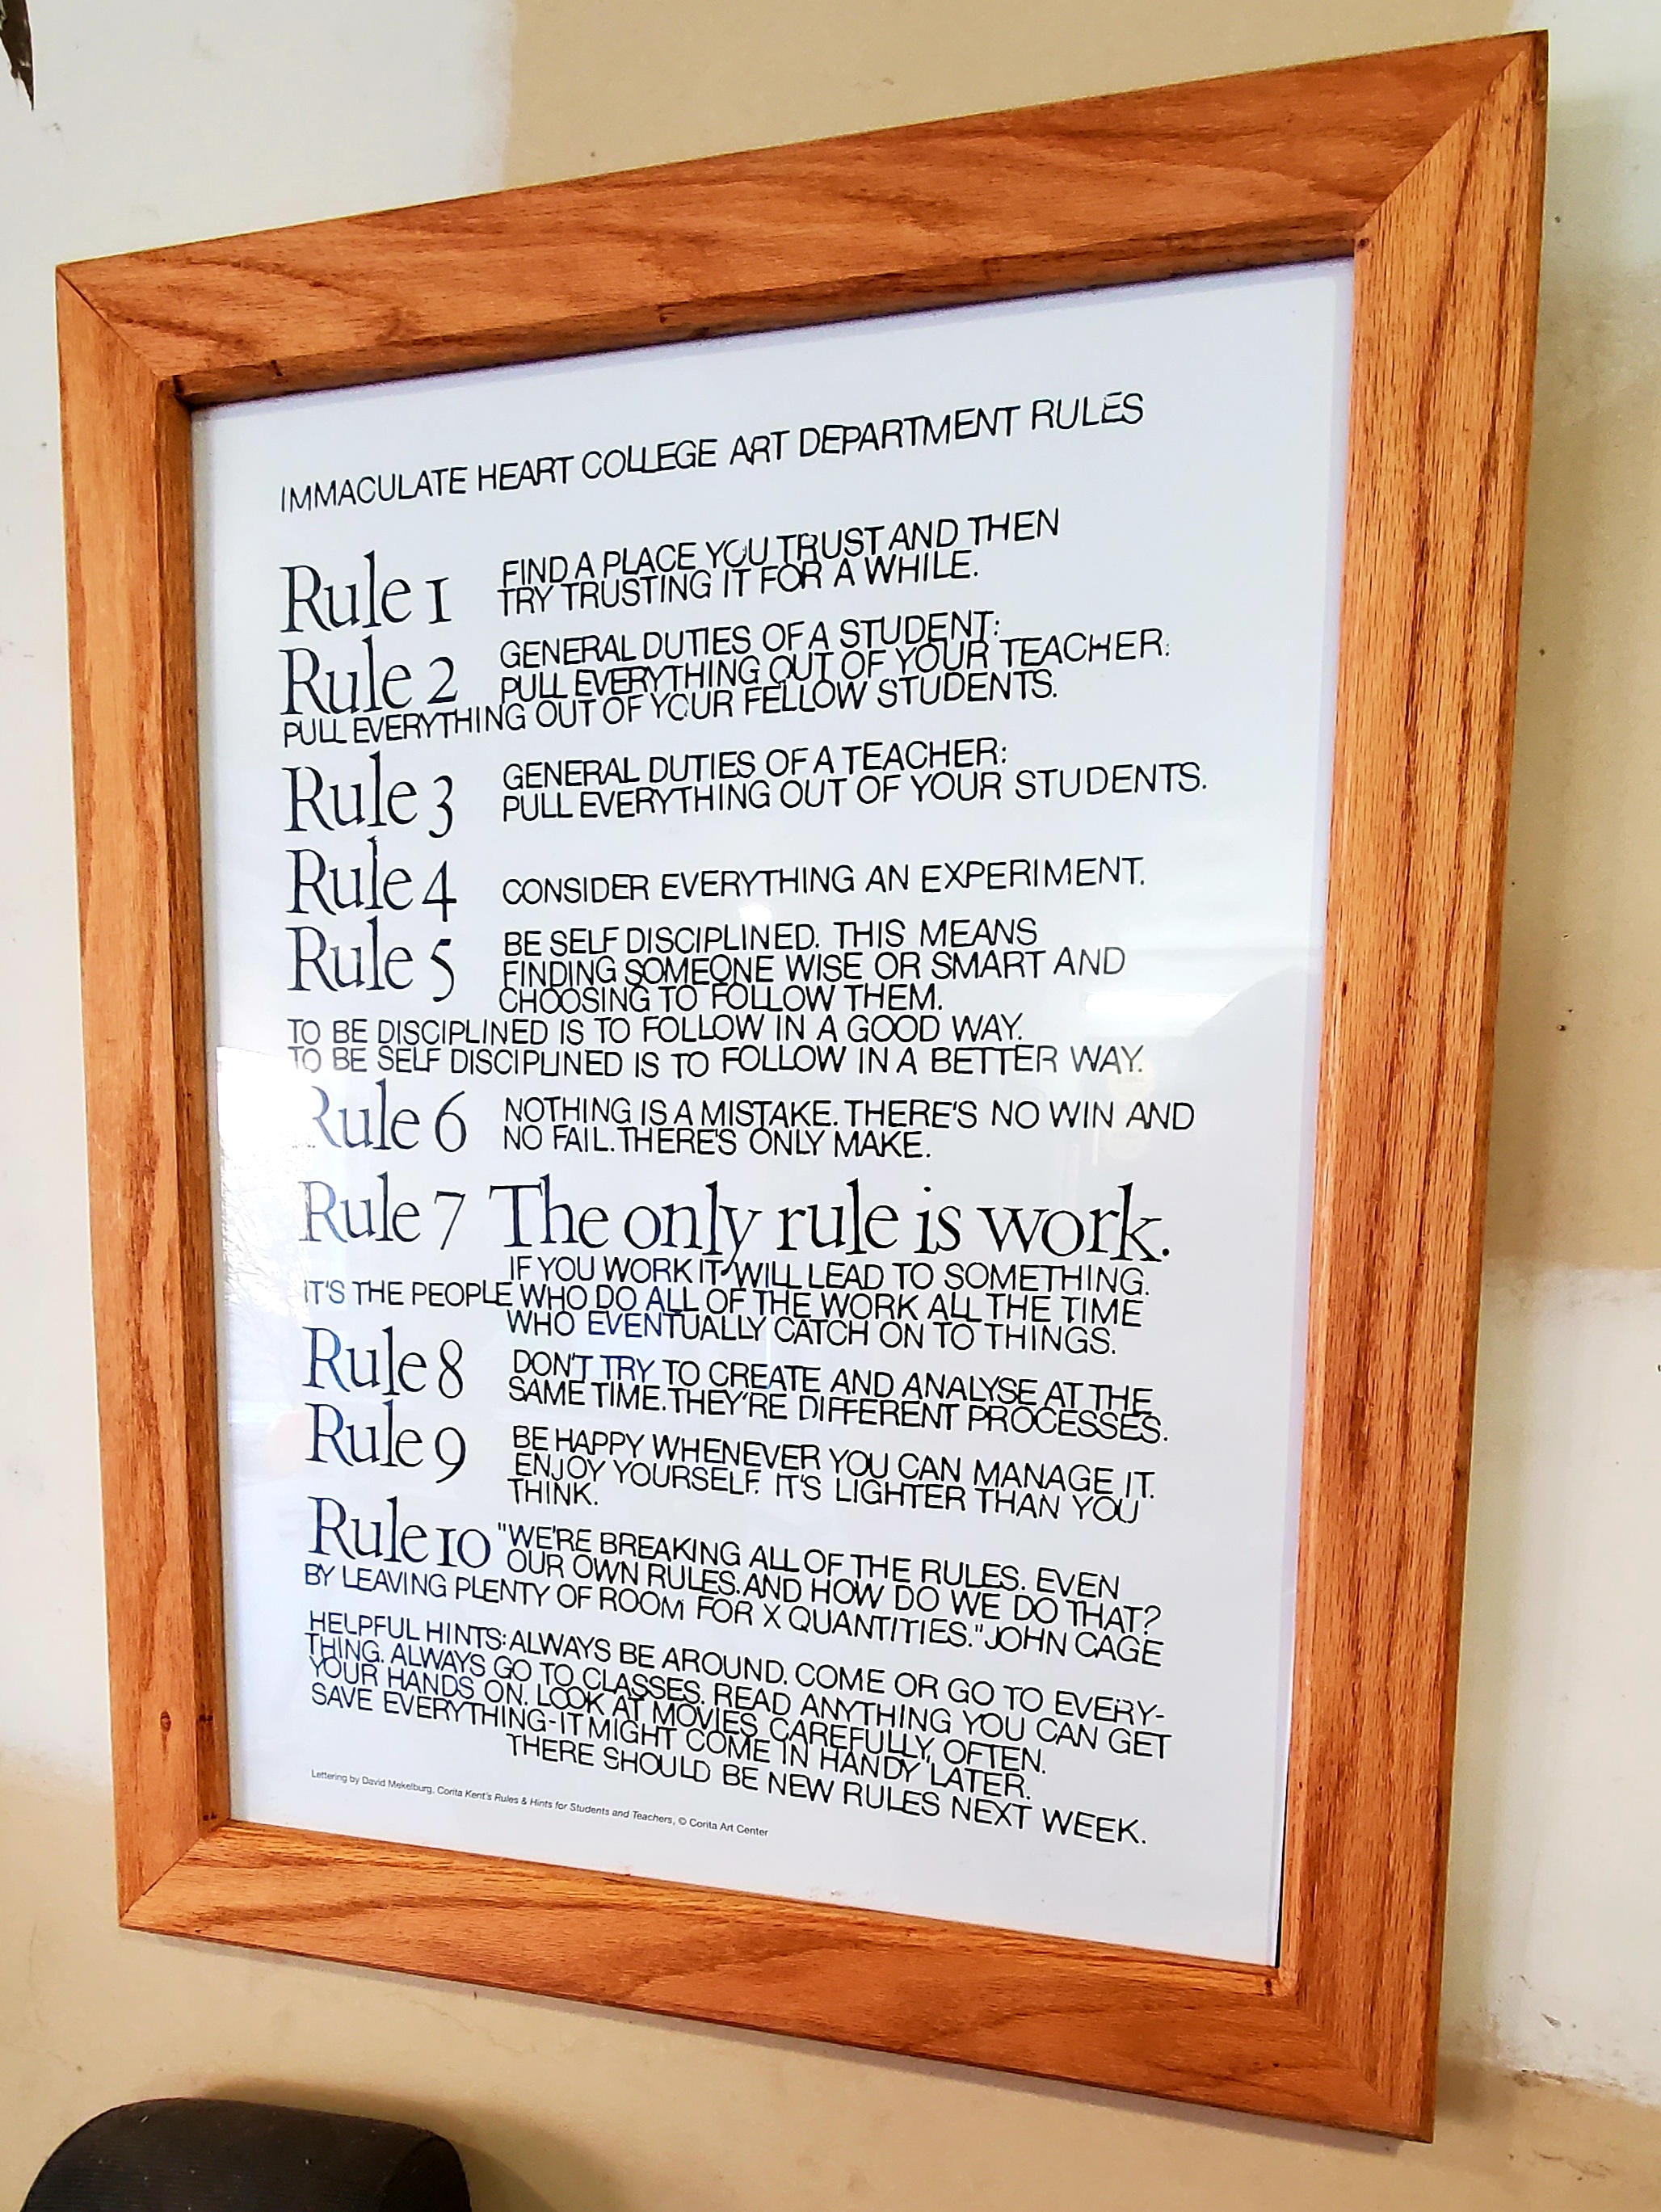 IMMACULATE HEART COLLEGE ART DEPARTMENT RULES
Rule 1 FIND A PLACE YOU TRUST AND THEN
TRY TRUSTING IT FOR A WHILE.
Rule 2 GENERAL DUTIES OF A STUDENT:
PULL EVERYTHING OUT OF YOUR TEACHER.
PULL EVERYTHING OUT OF YOUR FELLOW STUDENTS.
Rule 3 GENERAL DUTIES OF A TEACHER:
PULL EVERYTHING OUT OF YOUR STUDENTS.
Rule 4 CONSIDER EVERYTHING AN EXPERIMENT.
Rule 5 BE SELF DISCIPLINED. THIS MEANS
FINDING SOMEONE WISE OR SMART AND
CHOOSING TO FOLLOW THEM.
TO BE DISCIPLINED IS TO FOLLOW IN A GOOD WAY.
TO BE SELF DISCIPLINED IS TO FOLLOW IN A BETTER WAY.
Rule 6 NOTHING IS A MISTAKE. THERE'S NO WIN AND
NO FAIL. THERE'S ONLY MAKE.
Rule 7 The only rule is work.
IF YOU WORK IT WILL LEAD TO SOMETHING.
IT'S THE PEOPLE WHO DO ALL OF THE WORK ALL THE TIME
WHO EVENTUALLY CATCH ON TO THINGS.
Rule 8 DON'T TRY TO CREATE AND ANALYSE AT THE
SAME TIME. THEY'RE DIFFERENT PROCESSES.
Rule 9 BE HAPPY WHENEVER YOU CAN MANAGE IT.
ENJOY YOURSELF. IT'S LIGHTER THAN YOU
THINK.
Rule 10 "WE'RE BREAKING ALL OF THE RULES. EVEN
OUR OWN RULES. AND HOW DO WE DO THAT?
BY LEAVING PLENTY OF ROOM FOR X QUANTITIES." JOHN CAGE
HELPFUL HINTS: ALWAYS BE AROUND. COME OR GO TO EVERY-
THING. ALWAYS GO TO CLASSES. READ ANYTHING YOU CAN GET
YOUR HANDS ON. LOOK AT MOVIES CAREFULLY, OFTEN.
SAVE EVERYTHING-IT MIGHT COME IN HANDY LATER.
THERE SHOULD BE NEW RULES NEXT WEEK.
Lettering by David Mekelburg, Corita Kent's Rules & Hints for Students and Teachers, © Corita Art Center